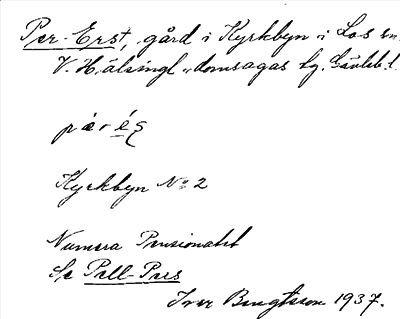 Per-Erst, gård i Kyrkbyn i Los sn.
V. Hälsingl. domsagas tg. Gävleb. l.
pær é̱
Kyrkbyn No 2
Numera Pensionatet
Se Pell-Pers
Iver Bengtsson 1937.